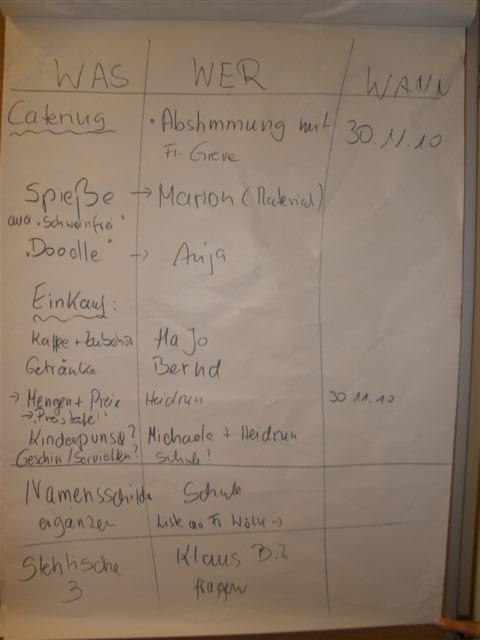 WAS WER WANN
Catering • Abstimmung mit 30.11.10
Fr. Greve
Spieße → Marion (Material)
auch "Schweinfrei"
"Doodle" → Anja
Einkauf:
Kaffee + Zubehör HaJo
Getränke Bernd
→ Mengen + Preise Heidrun 30.11.10
→ "Preistafel"
Kinderpunsch? Michaela + Heidrun
Geschirr/Servietten? Schule?
Namensschilder Schule
ergänzen Liste an Fr. Wölk →
Stehtische Klaus B.?
3 fragen